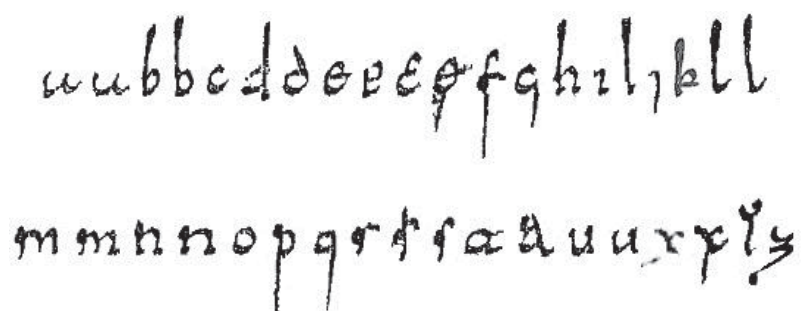 a a b b c d d e e e ę f g h i l j k l l
m m n n o p q r r s t t u u x x y z